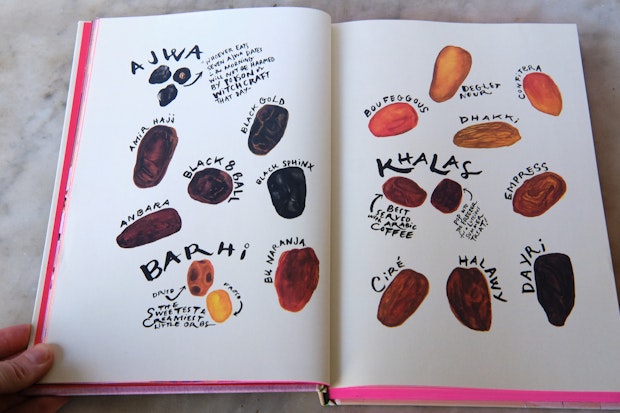 AJWA
"WHOEVER EATS
SEVEN AJWA DATES
IN THE MORNING
WILL NOT BE HARMED
BY POISON OR
WITCHCRAFT
THAT DAY"
AMIR HAJJ
BLACK GOLD
BLACK 8 BALL
BLACK SPHINX
ANBARA
BARHI
DRIED
FRESH
THE
SWEETEST &
CREAMIEST
LITTLE ORBS
BU NARANJA
BOUFEGGOUS
DEGLET
NOUR
CONFITERA
DHAKKI
KHALAS
BEST
SERVED
with ARABIC
COFFEE
EMPRESS
CIRÉ
HALAWY
DAYRI